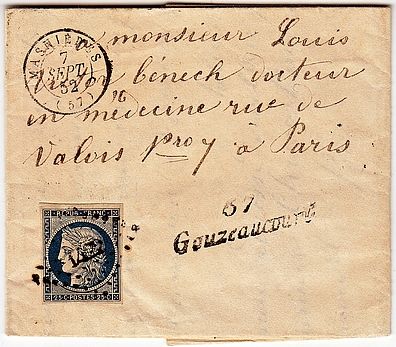 MASNIÈRES
7
SEPT.
52
(57)
monsieur Louis
bénech docteur
en médecine rue de
Valois Nro 7 à Paris
57
Gouzeaucourt
REPUB. FRANC.
25 C POSTES 25 C